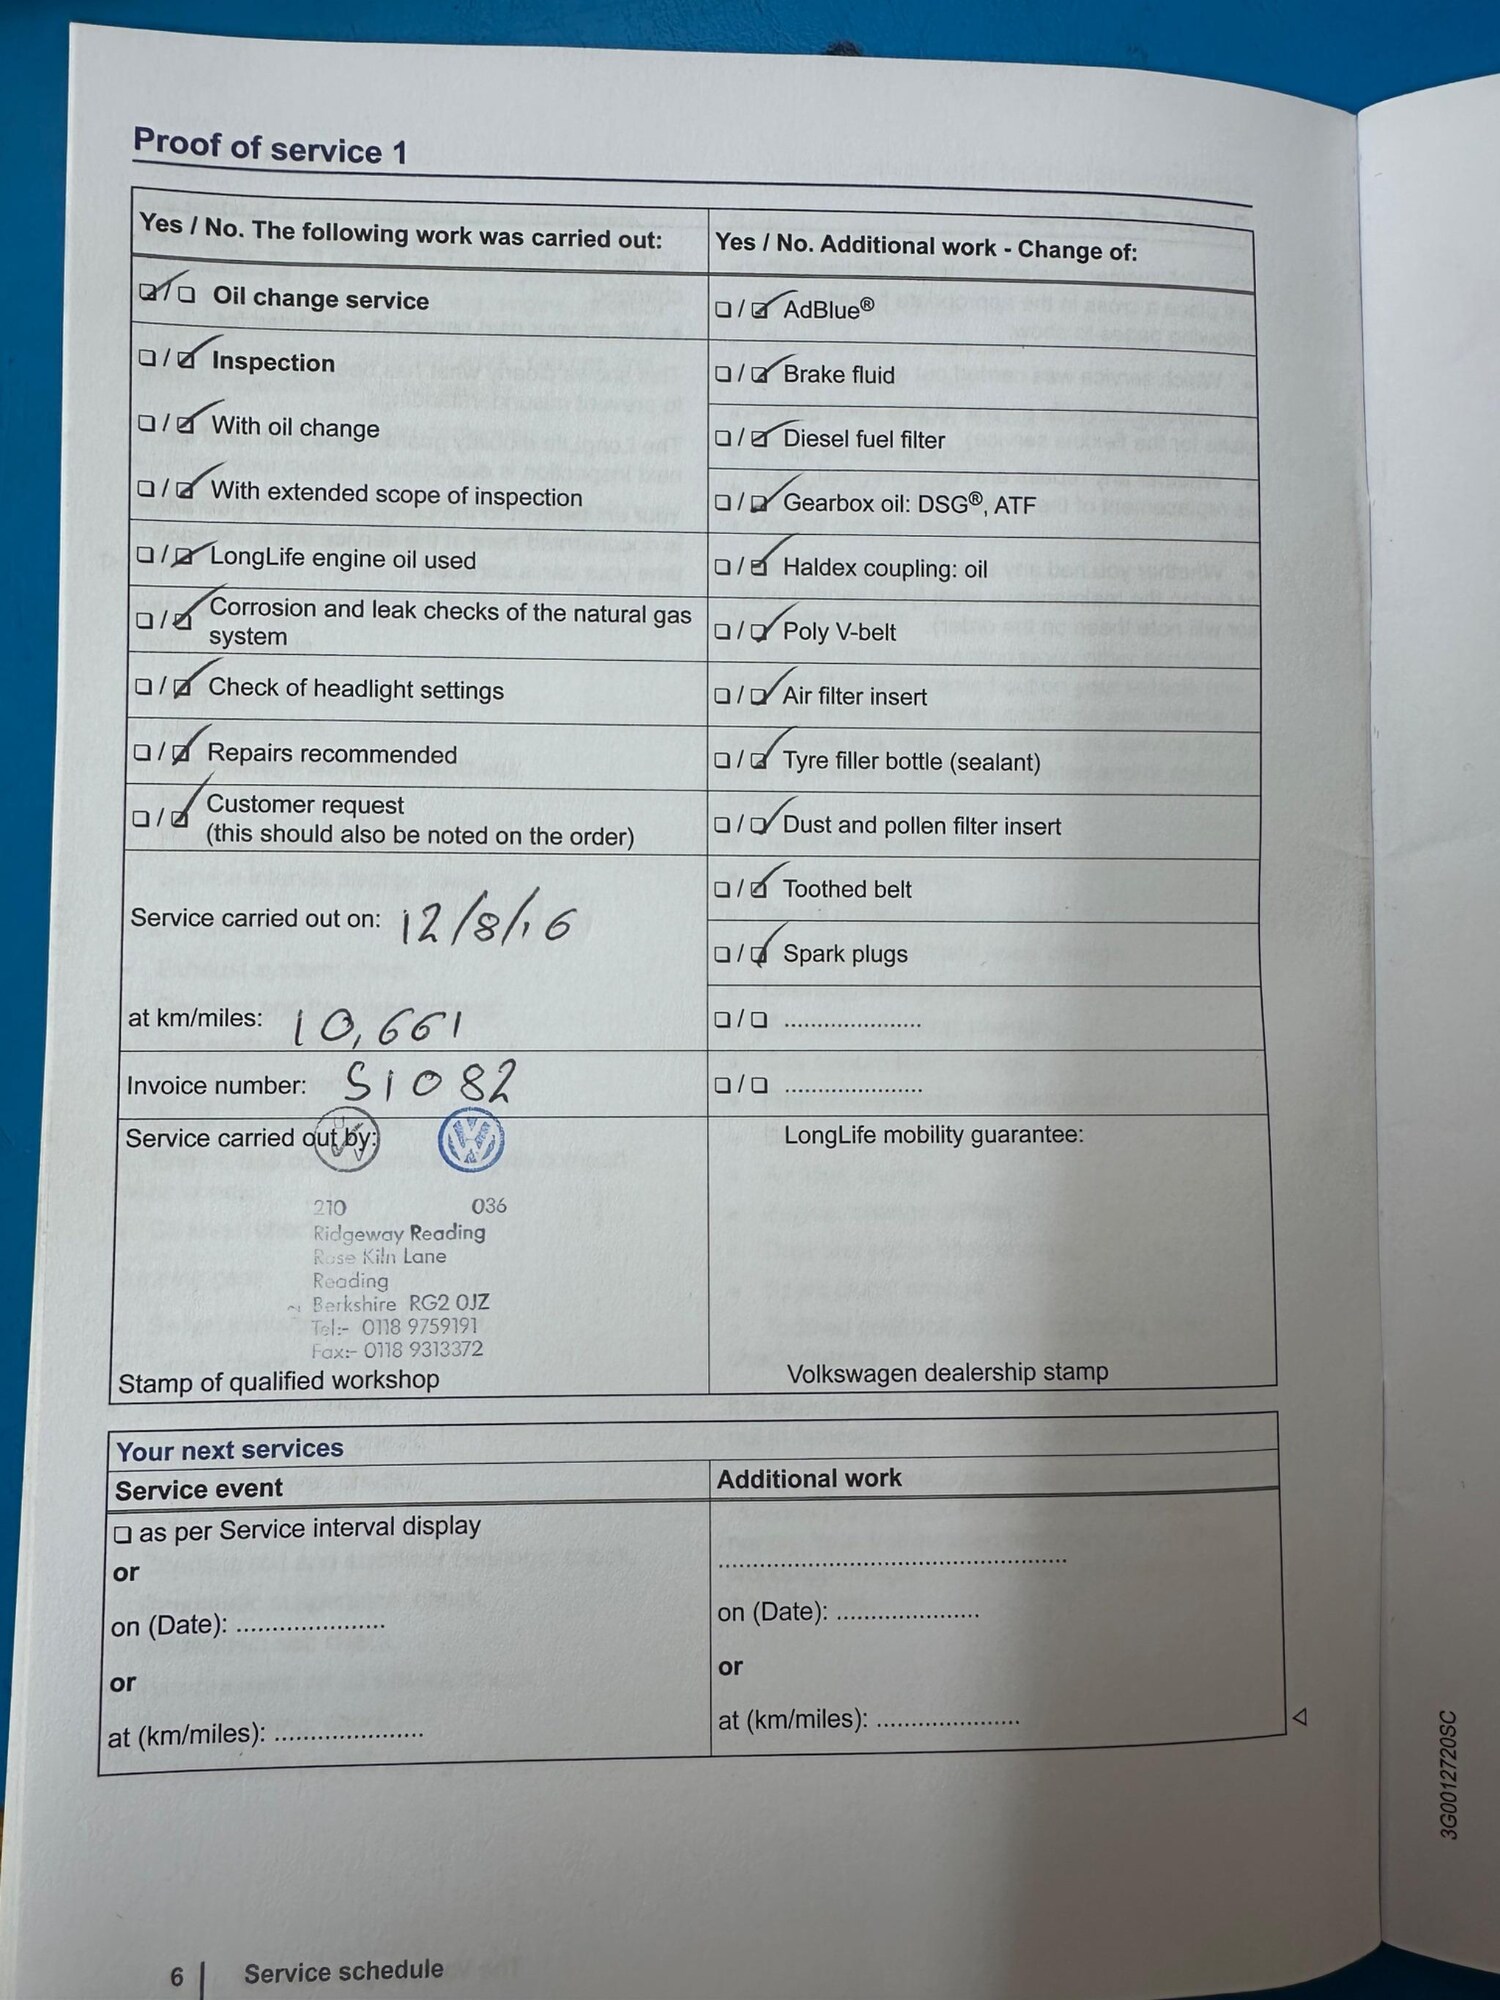 Proof of service 1
Yes / No. The following work was carried out:
☑/☐ Oil change service
☐/☑ Inspection
☐/☑ With oil change
☐/☑ With extended scope of inspection
☐/☑ LongLife engine oil used
☐/☑ Corrosion and leak checks of the natural gas
system
☐/☑ Check of headlight settings
☐/☑ Repairs recommended
☐/☑ Customer request
(this should also be noted on the order)
Service carried out on: 12/8/16
at km/miles: 10,661
Invoice number: S1082
Service carried out by:
210 036
Ridgeway Reading
Rose Kiln Lane
Reading
Berkshire RG2 0JZ
Tel:- 0118 9759191
Fax:- 0118 9313372
Stamp of qualified workshop
Yes / No. Additional work - Change of:
☐/☑ AdBlue®
☐/☑ Brake fluid
☐/☑ Diesel fuel filter
☐/☑ Gearbox oil: DSG®, ATF
☐/☑ Haldex coupling: oil
☐/☑ Poly V-belt
☐/☑ Air filter insert
☐/☑ Tyre filler bottle (sealant)
☐/☑ Dust and pollen filter insert
☐/☑ Toothed belt
☐/☑ Spark plugs
☐/☐ ......................
☐/☐ ......................
LongLife mobility guarantee:
Volkswagen dealership stamp
Your next services
Service event
☐ as per Service interval display
or
on (Date): ......................
or
at (km/miles): ......................
Additional work
......................................................
on (Date): ......................
or
at (km/miles): ......................
3G0012720SC
6 | Service schedule